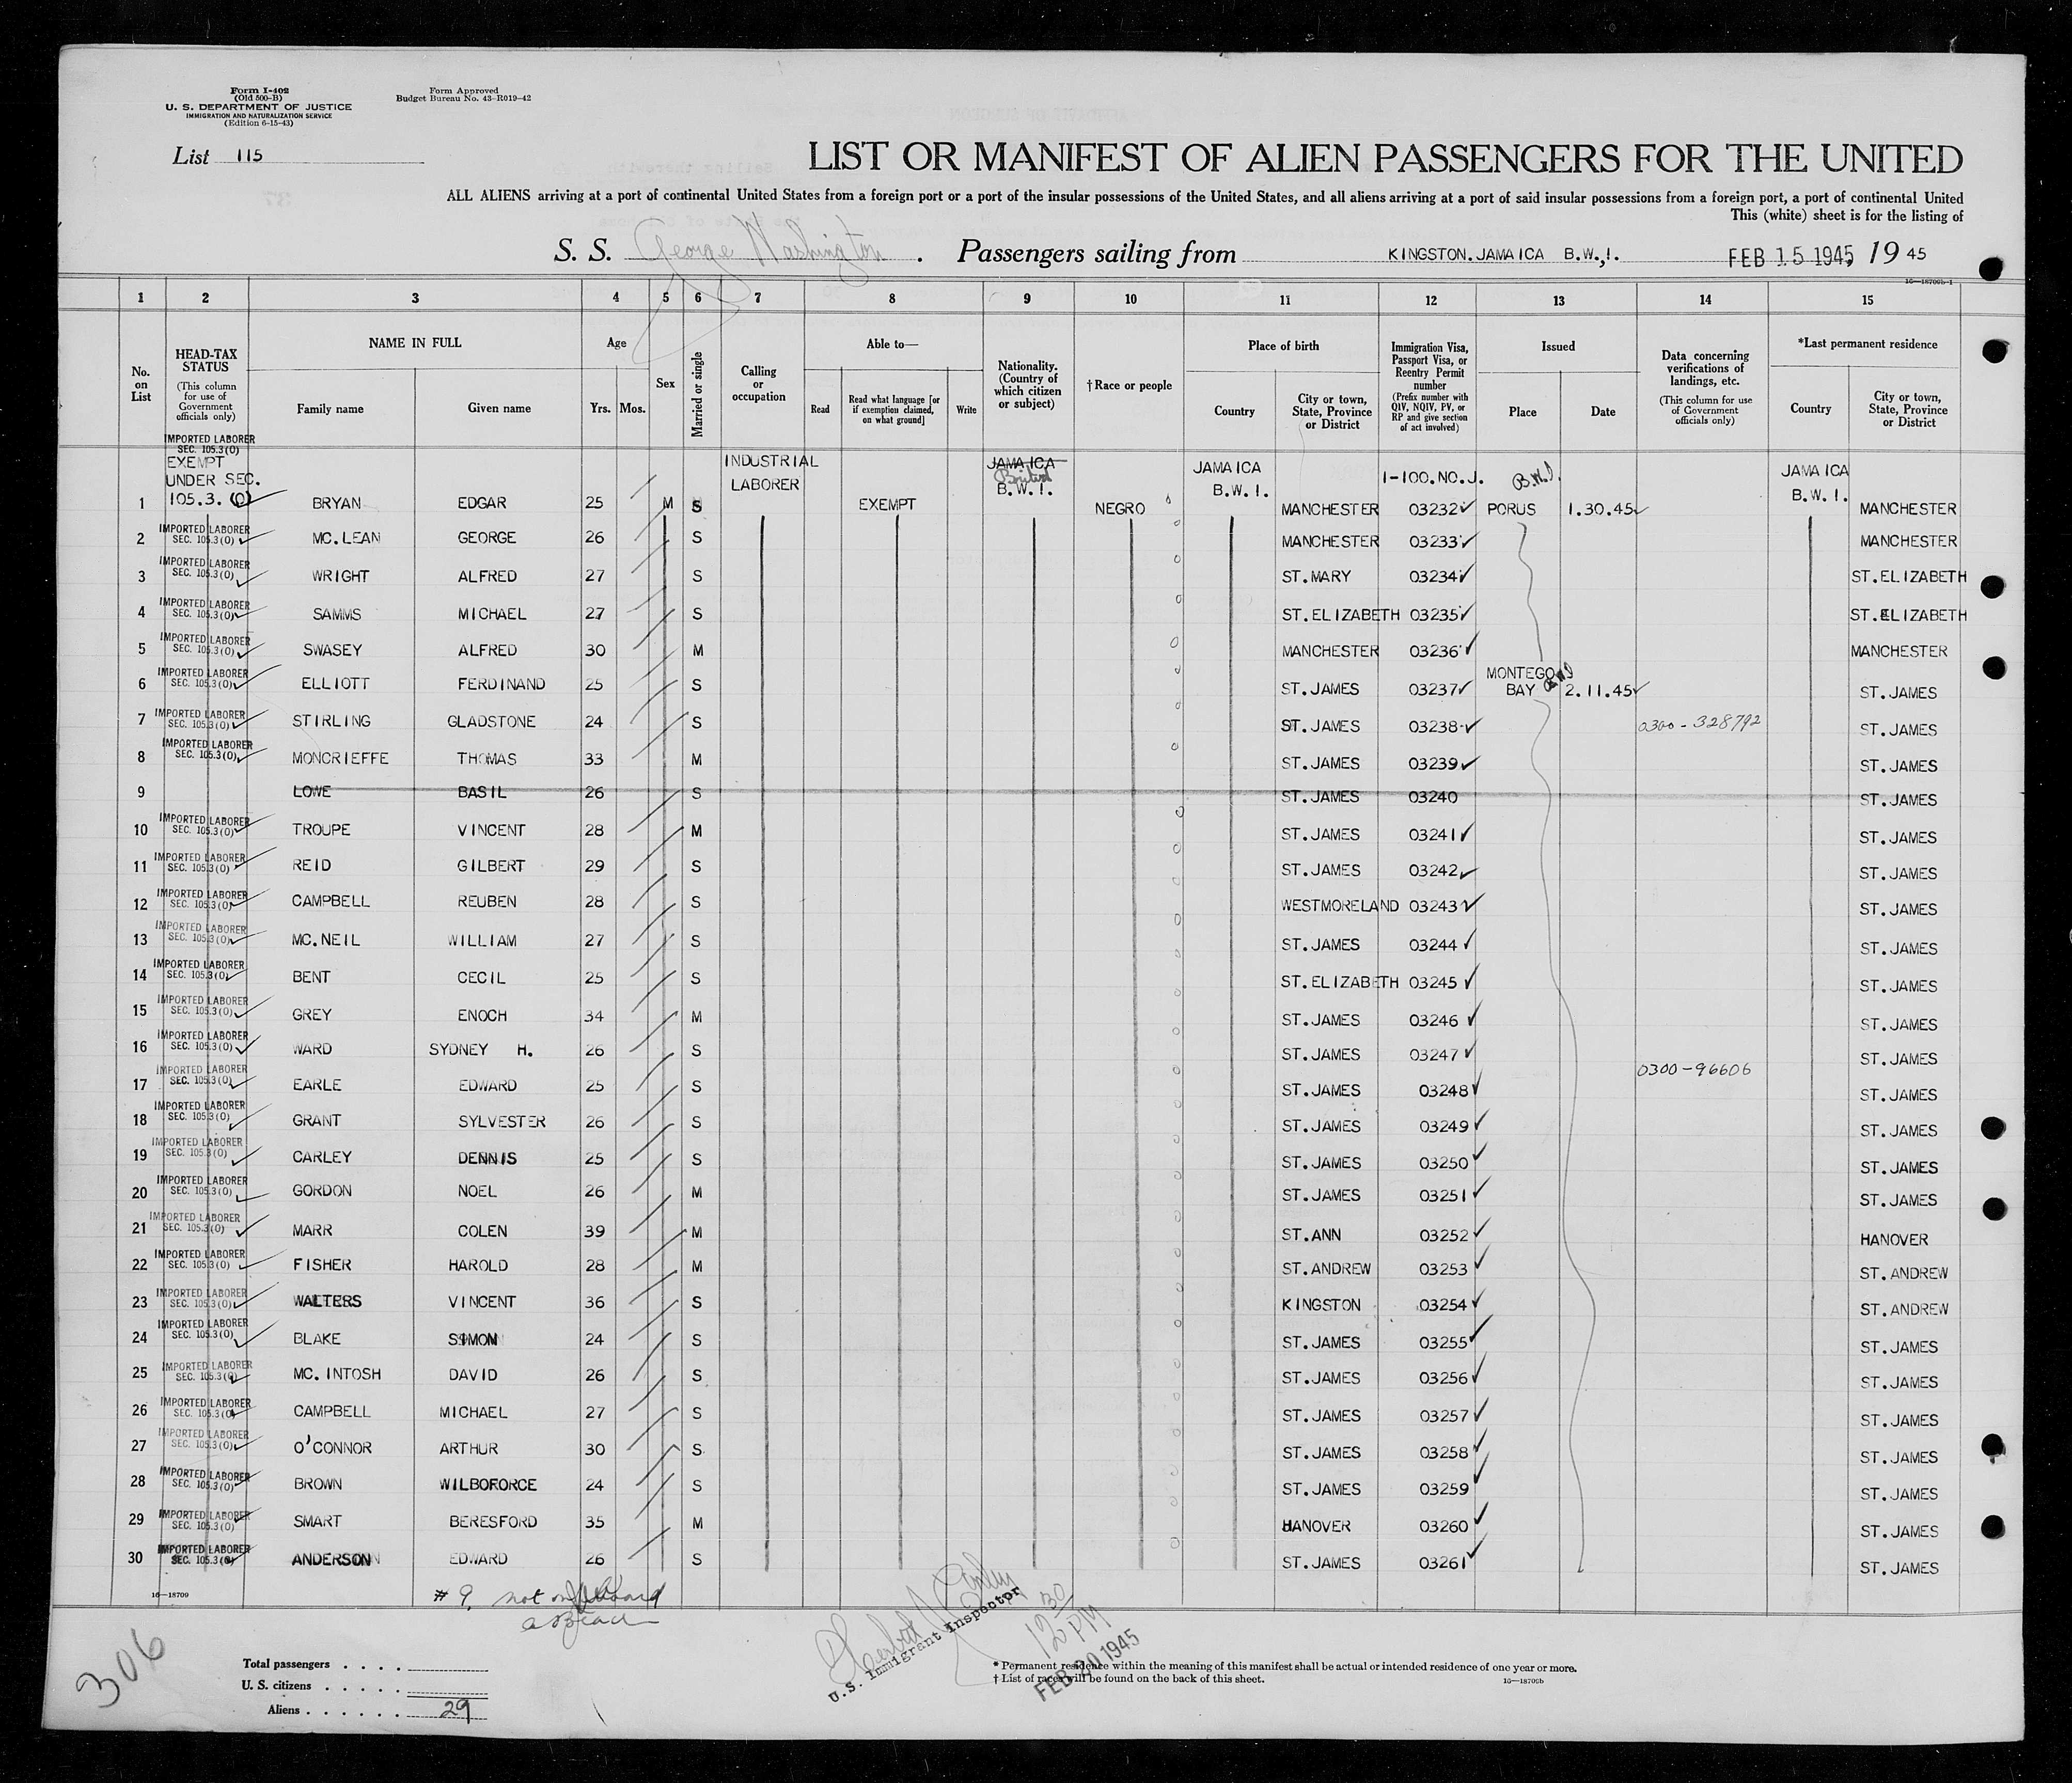 Form I-402
(Old 500-B)
U. S. DEPARTMENT OF JUSTICE
IMMIGRATION AND NATURALIZATION SERVICE
(Edition 6-15-43)
Form Approved
Budget Bureau No. 43-R019-42
List 115
LIST OR MANIFEST OF ALIEN PASSENGERS FOR THE UNITED
ALL ALIENS arriving at a port of continental United States from a foreign port or a port of the insular possessions of the United States, and all aliens arriving at a port of said insular possessions from a foreign port, a port of continental United
This (white) sheet is for the listing of
S. S. George Washington . Passengers sailing from KINGSTON.JAMAICA B.W.,I. FEB 15 1945, 19 45
16—18709b-1
1 2 3 4 5 6 7 8 9 10 11 12 13 14 15
No. on List
HEAD-TAX STATUS
(This column for use of Government officials only)
NAME IN FULL
Family name Given name
Age
Yrs. Mos.
Sex
Married or single
Calling or occupation
Able to—
Read
Read what language [or if exemption claimed, on what ground]
Write
Nationality. (Country of which citizen or subject)
†Race or people
Place of birth
Country
City or town, State, Province or District
Immigration Visa, Passport Visa, or Reentry Permit number
(Prefix number with QIV, NQIV, PV, or RP and give section of act involved)
Issued
Place Date
Data concerning verifications of landings, etc.
(This column for use of Government officials only)
*Last permanent residence
Country
City or town, State, Province or District
IMPORTED LABORER
SEC. 105.3(O)
EXEMPT
UNDER SEC.
105.3.(O)
INDUSTRIAL
LABORER
JAMAICA
British
B.W.I.
JAMAICA
B.W.I.
1-100.NO.J.
B.W.I.
JAMAICA
B.W.I.
1 BRYAN EDGAR 25 M S EXEMPT NEGRO MANCHESTER 03232 PORUS 1.30.45 MANCHESTER
2 IMPORTED LABORER SEC. 105.3(O) MC.LEAN GEORGE 26 S MANCHESTER 03233 MANCHESTER
3 IMPORTED LABORER SEC. 105.3(O) WRIGHT ALFRED 27 S ST.MARY 03234 ST.ELIZABETH
4 IMPORTED LABORER SEC. 105.3(O) SAMMS MICHAEL 27 S ST.ELIZABETH 03235 ST.ELIZABETH
5 IMPORTED LABORER SEC. 105.3(O) SWASEY ALFRED 30 M MANCHESTER 03236 MANCHESTER
6 IMPORTED LABORER SEC. 105.3(O) ELLIOTT FERDINAND 25 S ST.JAMES 03237 MONTEGO BAY BWI 2.11.45 ST.JAMES
7 IMPORTED LABORER SEC. 105.3(O) STIRLING GLADSTONE 24 S ST.JAMES 03238 0300-328792 ST.JAMES
8 IMPORTED LABORER SEC. 105.3(O) MONCRIEFFE THOMAS 33 M ST.JAMES 03239 ST.JAMES
9 LOWE BASIL 26 S ST.JAMES 03240 ST.JAMES
10 IMPORTED LABORER SEC. 105.3(O) TROUPE VINCENT 28 M ST.JAMES 03241 ST.JAMES
11 IMPORTED LABORER SEC. 105.3(O) REID GILBERT 29 S ST.JAMES 03242 ST.JAMES
12 IMPORTED LABORER SEC. 105.3(O) CAMPBELL REUBEN 28 S WESTMORELAND 03243 ST.JAMES
13 IMPORTED LABORER SEC. 105.3(O) MC.NEIL WILLIAM 27 S ST.JAMES 03244 ST.JAMES
14 IMPORTED LABORER SEC. 105.3(O) BENT CECIL 25 S ST.ELIZABETH 03245 ST.JAMES
15 IMPORTED LABORER SEC. 105.3(O) GREY ENOCH 34 M ST.JAMES 03246 ST.JAMES
16 IMPORTED LABORER SEC. 105.3(O) WARD SYDNEY H. 26 S ST.JAMES 03247 ST.JAMES
17 IMPORTED LABORER SEC. 105.3(O) EARLE EDWARD 25 S ST.JAMES 03248 0300-96606 ST.JAMES
18 IMPORTED LABORER SEC. 105.3(O) GRANT SYLVESTER 26 S ST.JAMES 03249 ST.JAMES
19 IMPORTED LABORER SEC. 105.3(O) CARLEY DENNIS 25 S ST.JAMES 03250 ST.JAMES
20 IMPORTED LABORER SEC. 105.3(O) GORDON NOEL 26 M ST.JAMES 03251 ST.JAMES
21 IMPORTED LABORER SEC. 105.3(O) MARR COLEN 39 M ST.ANN 03252 HANOVER
22 IMPORTED LABORER SEC. 105.3(O) FISHER HAROLD 28 M ST.ANDREW 03253 ST.ANDREW
23 IMPORTED LABORER SEC. 105.3(O) WALTERS VINCENT 36 S KINGSTON 03254 ST.ANDREW
24 IMPORTED LABORER SEC. 105.3(O) BLAKE SIMON 24 S ST.JAMES 03255 ST.JAMES
25 IMPORTED LABORER SEC. 105.3(O) MC.INTOSH DAVID 26 S ST.JAMES 03256 ST.JAMES
26 IMPORTED LABORER SEC. 105.3(O) CAMPBELL MICHAEL 27 S ST.JAMES 03257 ST.JAMES
27 IMPORTED LABORER SEC. 105.3(O) O'CONNOR ARTHUR 30 S ST.JAMES 03258 ST.JAMES
28 IMPORTED LABORER SEC. 105.3(O) BROWN WILBOFORCE 24 S ST.JAMES 03259 ST.JAMES
29 IMPORTED LABORER SEC. 105.3(O) SMART BERESFORD 35 M HANOVER 03260 ST.JAMES
30 IMPORTED LABORER SEC. 105.3(O) ANDERSON EDWARD 26 S ST.JAMES 03261 ST.JAMES
16—18709
# 9. not on board
U.S. Immigrant Inspector
12 30 PM
FEB 20 1945
306
Total passengers . . . .
U. S. citizens . . . . .
Aliens . . . . . . 29
* Permanent residence within the meaning of this manifest shall be actual or intended residence of one year or more.
† List of races will be found on the back of this sheet.
16—18709b